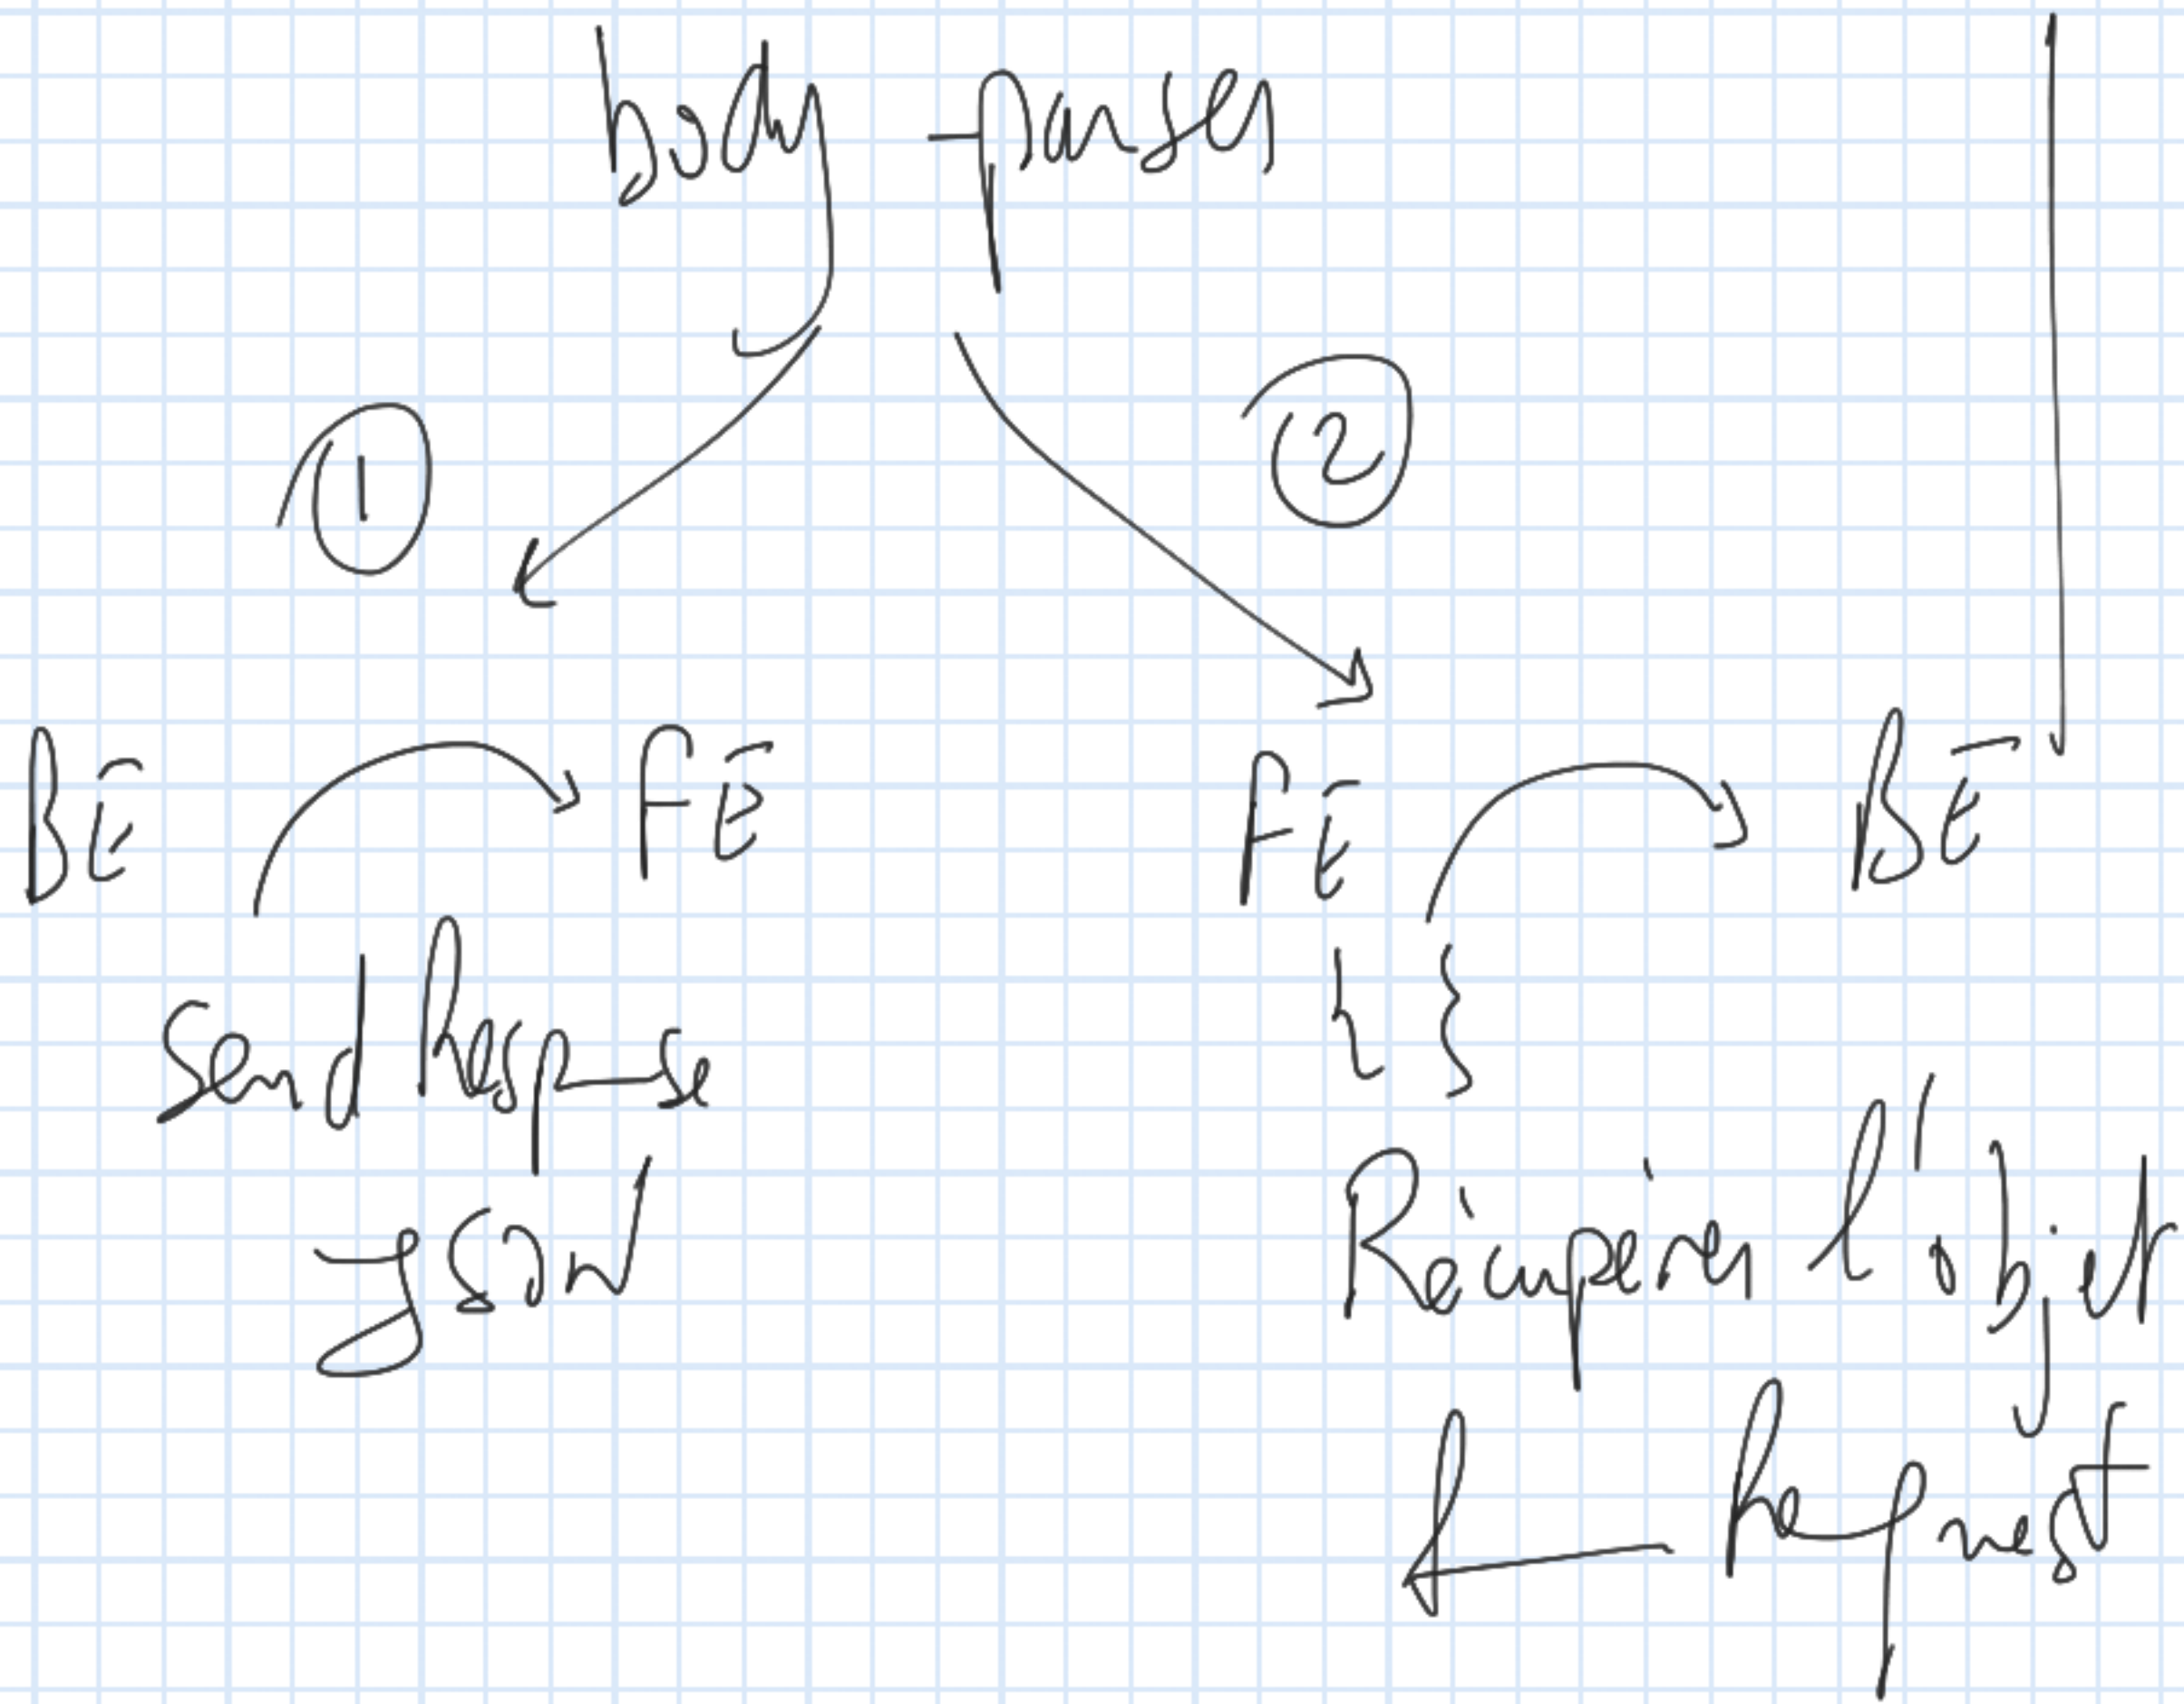 body-parser
① ②
BE FE FE BE
{ }
Send Response
JSON
Récupérer l'objet
de Request